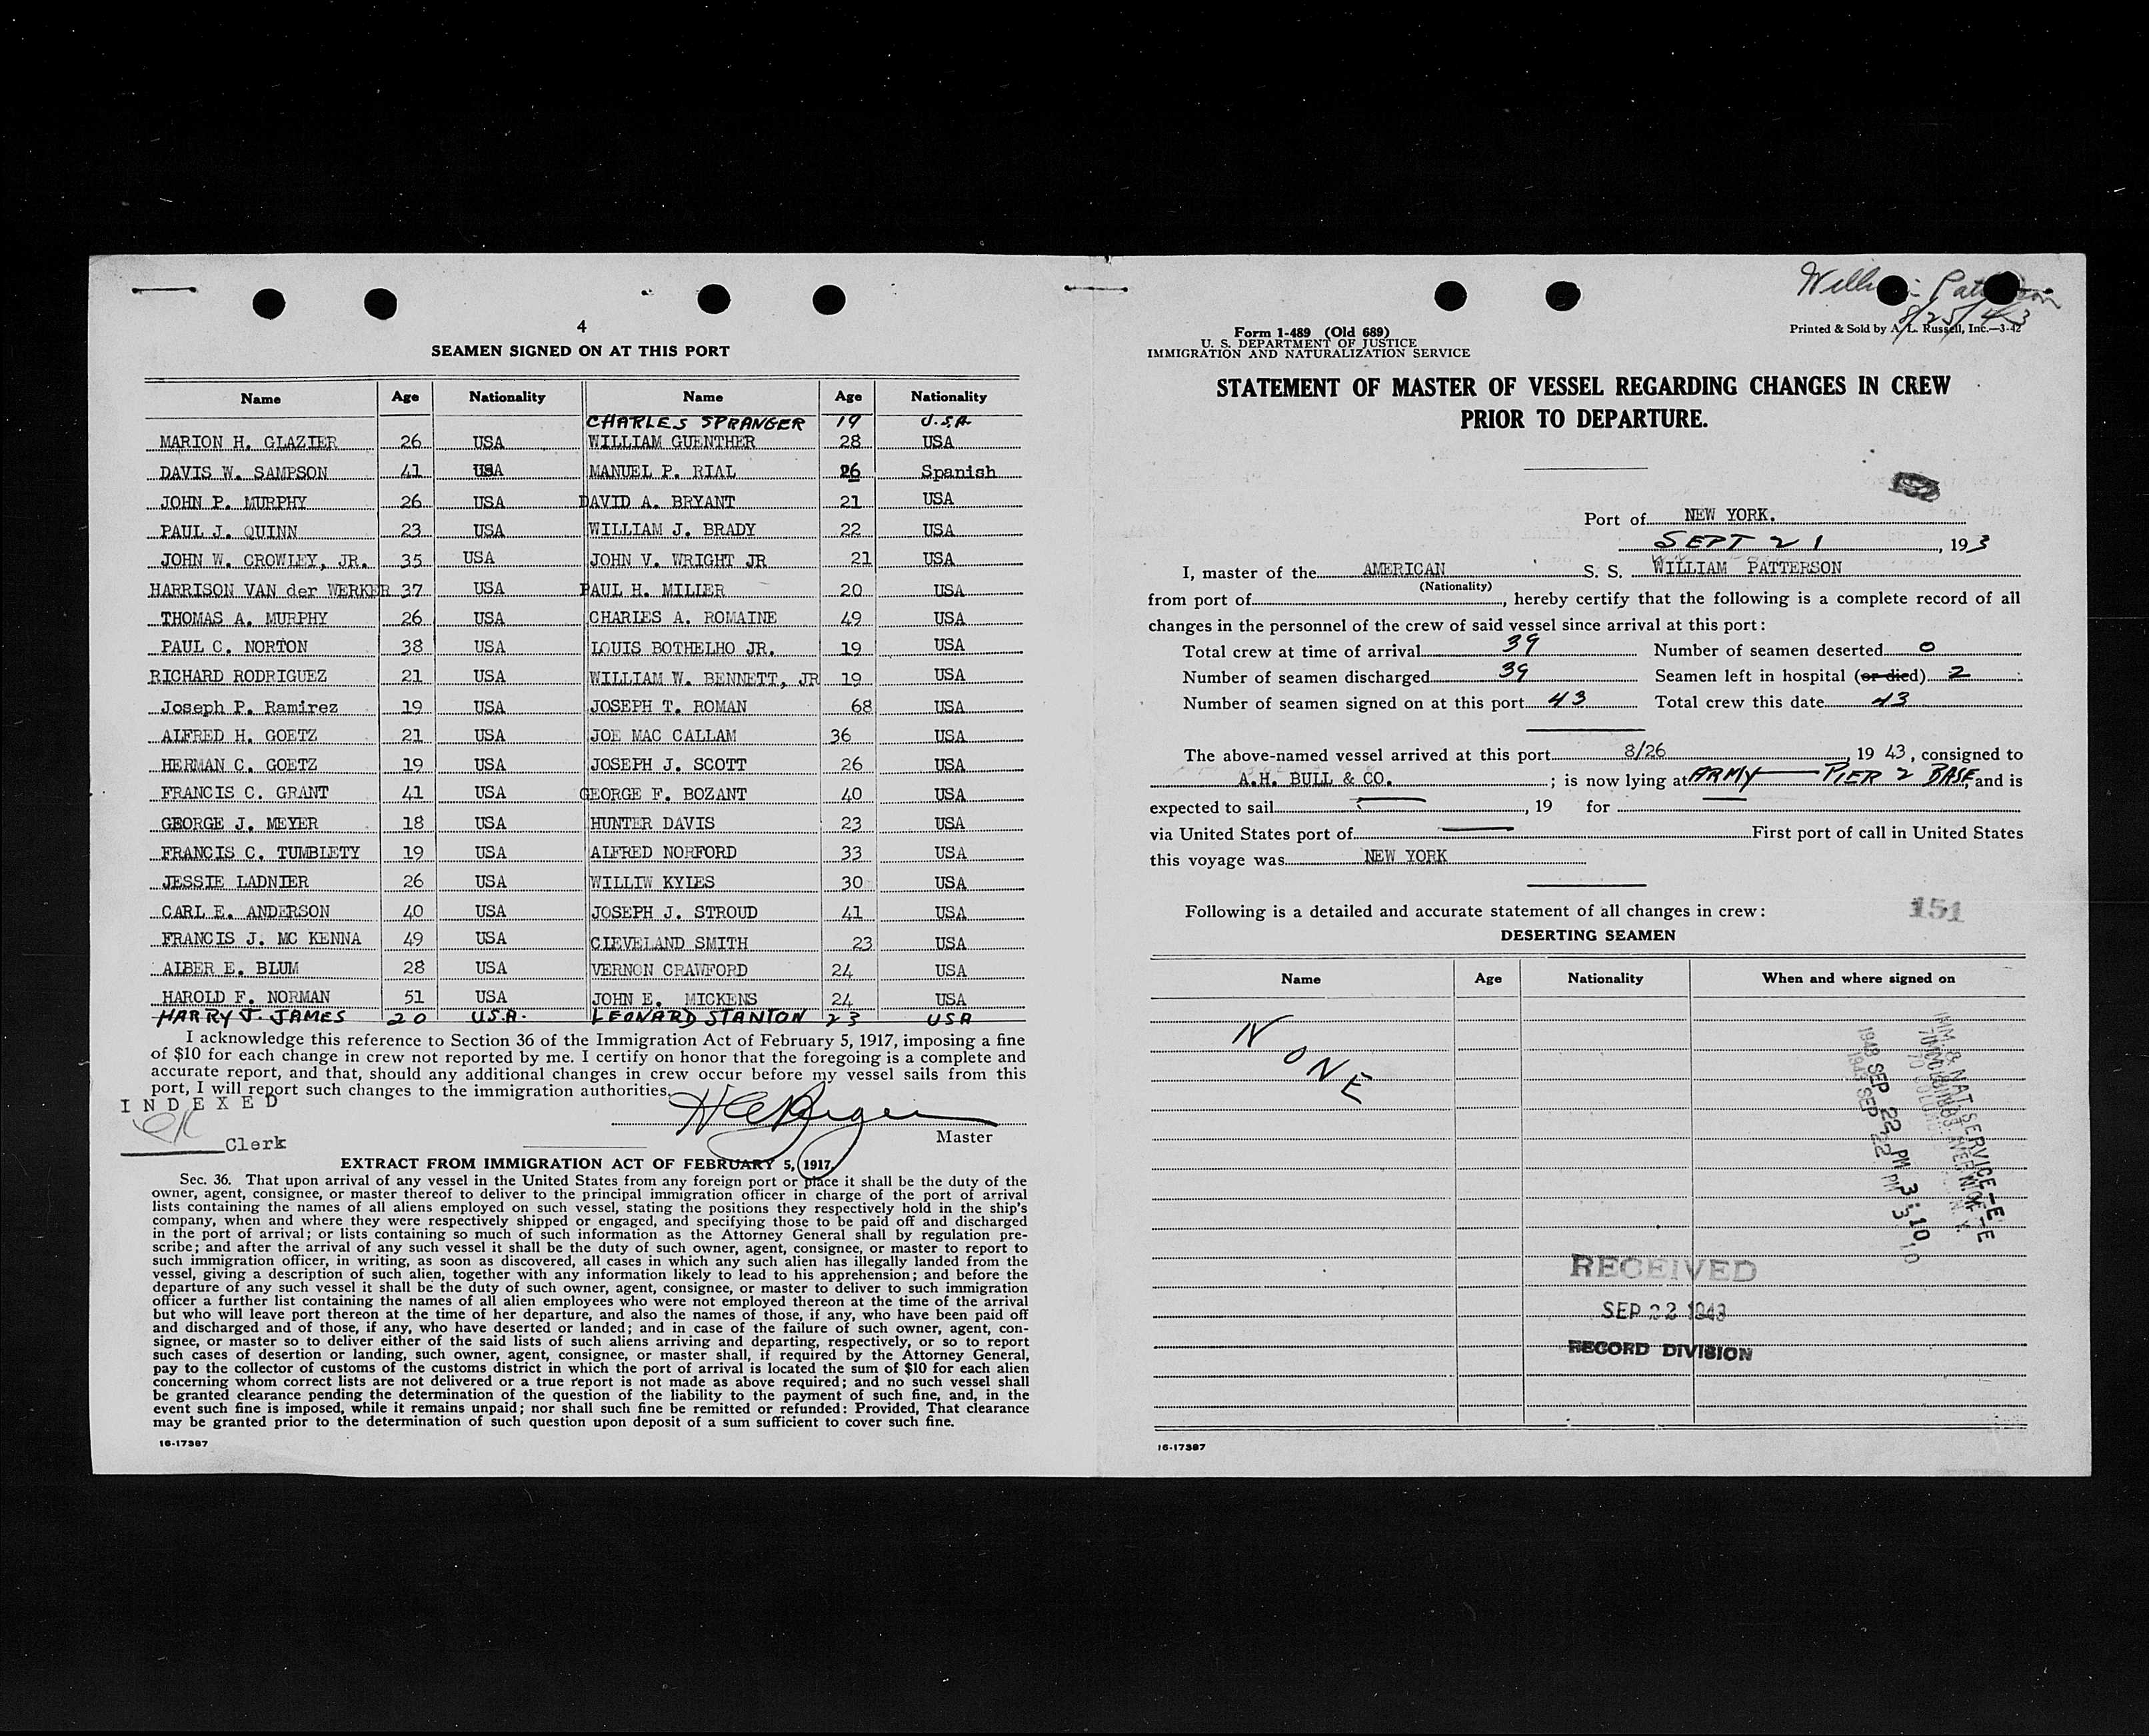 4
SEAMEN SIGNED ON AT THIS PORT
Name Age Nationality Name Age Nationality
CHARLES SPRANGER 19 U.S.A.
MARION H. GLAZIER 26 USA WILLIAM GUENTHER 28 USA
DAVIS W. SAMPSON 41 USA MANUEL P. RIAL 26 Spanish
JOHN P. MURPHY 26 USA DAVID A. BRYANT 21 USA
PAUL J. QUINN 23 USA WILLIAM J. BRADY 22 USA
JOHN W. CROWLEY, JR. 35 USA JOHN V. WRIGHT JR 21 USA
HARRISON VAN der WERKER 37 USA PAUL H. MILLER 20 USA
THOMAS A. MURPHY 26 USA CHARLES A. ROMAINE 49 USA
PAUL C. NORTON 38 USA LOUIS BOTHELHO JR. 19 USA
RICHARD RODRIGUEZ 21 USA WILLIAM W. BENNETT, JR 19 USA
Joseph P. Ramirez 19 USA JOSEPH T. ROMAN 68 USA
ALFRED H. GOETZ 21 USA JOE MAC CALLAM 36 USA
HERMAN C. GOETZ 19 USA JOSEPH J. SCOTT 26 USA
FRANCIS C. GRANT 41 USA GEORGE F. BOZANT 40 USA
GEORGE J. MEYER 18 USA HUNTER DAVIS 23 USA
FRANCIS C. TUMBLETY 19 USA ALFRED NORFORD 33 USA
JESSIE LADNIER 26 USA WILLIW KYLES 30 USA
CARL E. ANDERSON 40 USA JOSEPH J. STROUD 41 USA
FRANCIS J. MC KENNA 49 USA CLEVELAND SMITH 23 USA
ALBER E. BLUM 28 USA VERNON CRAWFORD 24 USA
HAROLD F. NORMAN 51 USA JOHN E. MICKENS 24 USA
HARRY J. JAMES 20 U.S.A. LEONARD STANTON 23 USA
I acknowledge this reference to Section 36 of the Immigration Act of February 5, 1917, imposing a fine
of $10 for each change in crew not reported by me. I certify on honor that the foregoing is a complete and
accurate report, and that, should any additional changes in crew occur before my vessel sails from this
port, I will report such changes to the immigration authorities.
INDEXED
Clerk
Master
EXTRACT FROM IMMIGRATION ACT OF FEBRUARY 5, 1917.
Sec. 36. That upon arrival of any vessel in the United States from any foreign port or place it shall be the duty of the
owner, agent, consignee, or master thereof to deliver to the principal immigration officer in charge of the port of arrival
lists containing the names of all aliens employed on such vessel, stating the positions they respectively hold in the ship's
company, when and where they were respectively shipped or engaged, and specifying those to be paid off and discharged
in the port of arrival; or lists containing so much of such information as the Attorney General shall by regulation pre-
scribe; and after the arrival of any such vessel it shall be the duty of such owner, agent, consignee, or master to report to
such immigration officer, in writing, as soon as discovered, all cases in which any such alien has illegally landed from the
vessel, giving a description of such alien, together with any information likely to lead to his apprehension; and before the
departure of any such vessel it shall be the duty of such owner, agent, consignee, or master to deliver to such immigration
officer a further list containing the names of all alien employees who were not employed thereon at the time of the arrival
but who will leave port thereon at the time of her departure, and also the names of those, if any, who have been paid off
and discharged and of those, if any, who have deserted or landed; and in case of the failure of such owner, agent, con-
signee, or master so to deliver either of the said lists of such aliens arriving and departing, respectively, or so to report
such cases of desertion or landing, such owner, agent, consignee, or master shall, if required by the Attorney General,
pay to the collector of customs of the customs district in which the port of arrival is located the sum of $10 for each alien
concerning whom correct lists are not delivered or a true report is not made as above required; and no such vessel shall
be granted clearance pending the determination of the question of the liability to the payment of such fine, and, in the
event such fine is imposed, while it remains unpaid; nor shall such fine be remitted or refunded: Provided, That clearance
may be granted prior to the determination of such question upon deposit of a sum sufficient to cover such fine.
16-17387
William Patterson
8/25/43
Form 1-489 (Old 689)
U. S. DEPARTMENT OF JUSTICE
IMMIGRATION AND NATURALIZATION SERVICE
Printed & Sold by A. L. Russell, Inc.—3-42
STATEMENT OF MASTER OF VESSEL REGARDING CHANGES IN CREW
PRIOR TO DEPARTURE.
Port of NEW YORK.
SEPT 21, 193
I, master of the AMERICAN S. S. WILLIAM PATTERSON
(Nationality)
from port of, hereby certify that the following is a complete record of all
changes in the personnel of the crew of said vessel since arrival at this port:
Total crew at time of arrival 39 Number of seamen deserted 0
Number of seamen discharged 39 Seamen left in hospital (or died) 2
Number of seamen signed on at this port 43 Total crew this date 43
The above-named vessel arrived at this port 8/26 19 43, consigned to
A.H. BULL & CO.; is now lying at ARMY — PIER 2 BASE, and is
expected to sail, 19 for
via United States port of First port of call in United States
this voyage was NEW YORK
Following is a detailed and accurate statement of all changes in crew: 151
DESERTING SEAMEN
Name Age Nationality When and where signed on
NONE
1943 SEP 22 PM 3:10
RECEIVED
SEP 22 1943
RECORD DIVISION
16-17387